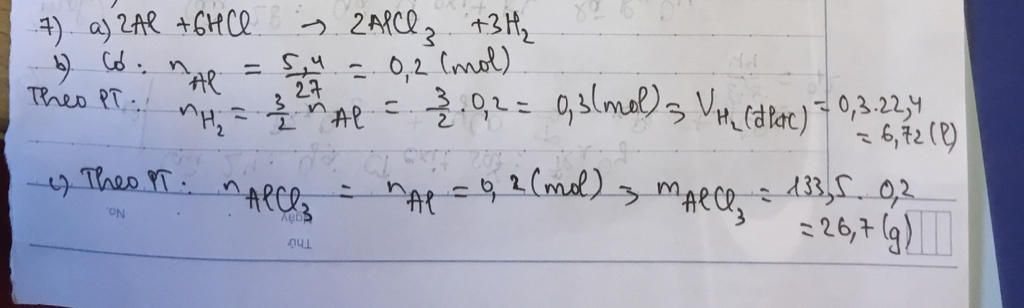 7) a) 2Al + 6HCl → 2AlCl₃ + 3H₂
b) Có: n_Al = 5,4/27 = 0,2 (mol)
Theo PT: n_H₂ = 3/2 n_Al = 3/2 . 0,2 = 0,3 (mol) => V_H₂ (đktc) = 0,3.22,4
= 6,72 (l)
c) Theo PT: n_AlCl₃ = n_Al = 0,2 (mol) => m_AlCl₃ = 133,5 . 0,2
= 26,7 (g)
No.
Ngày
Thứ